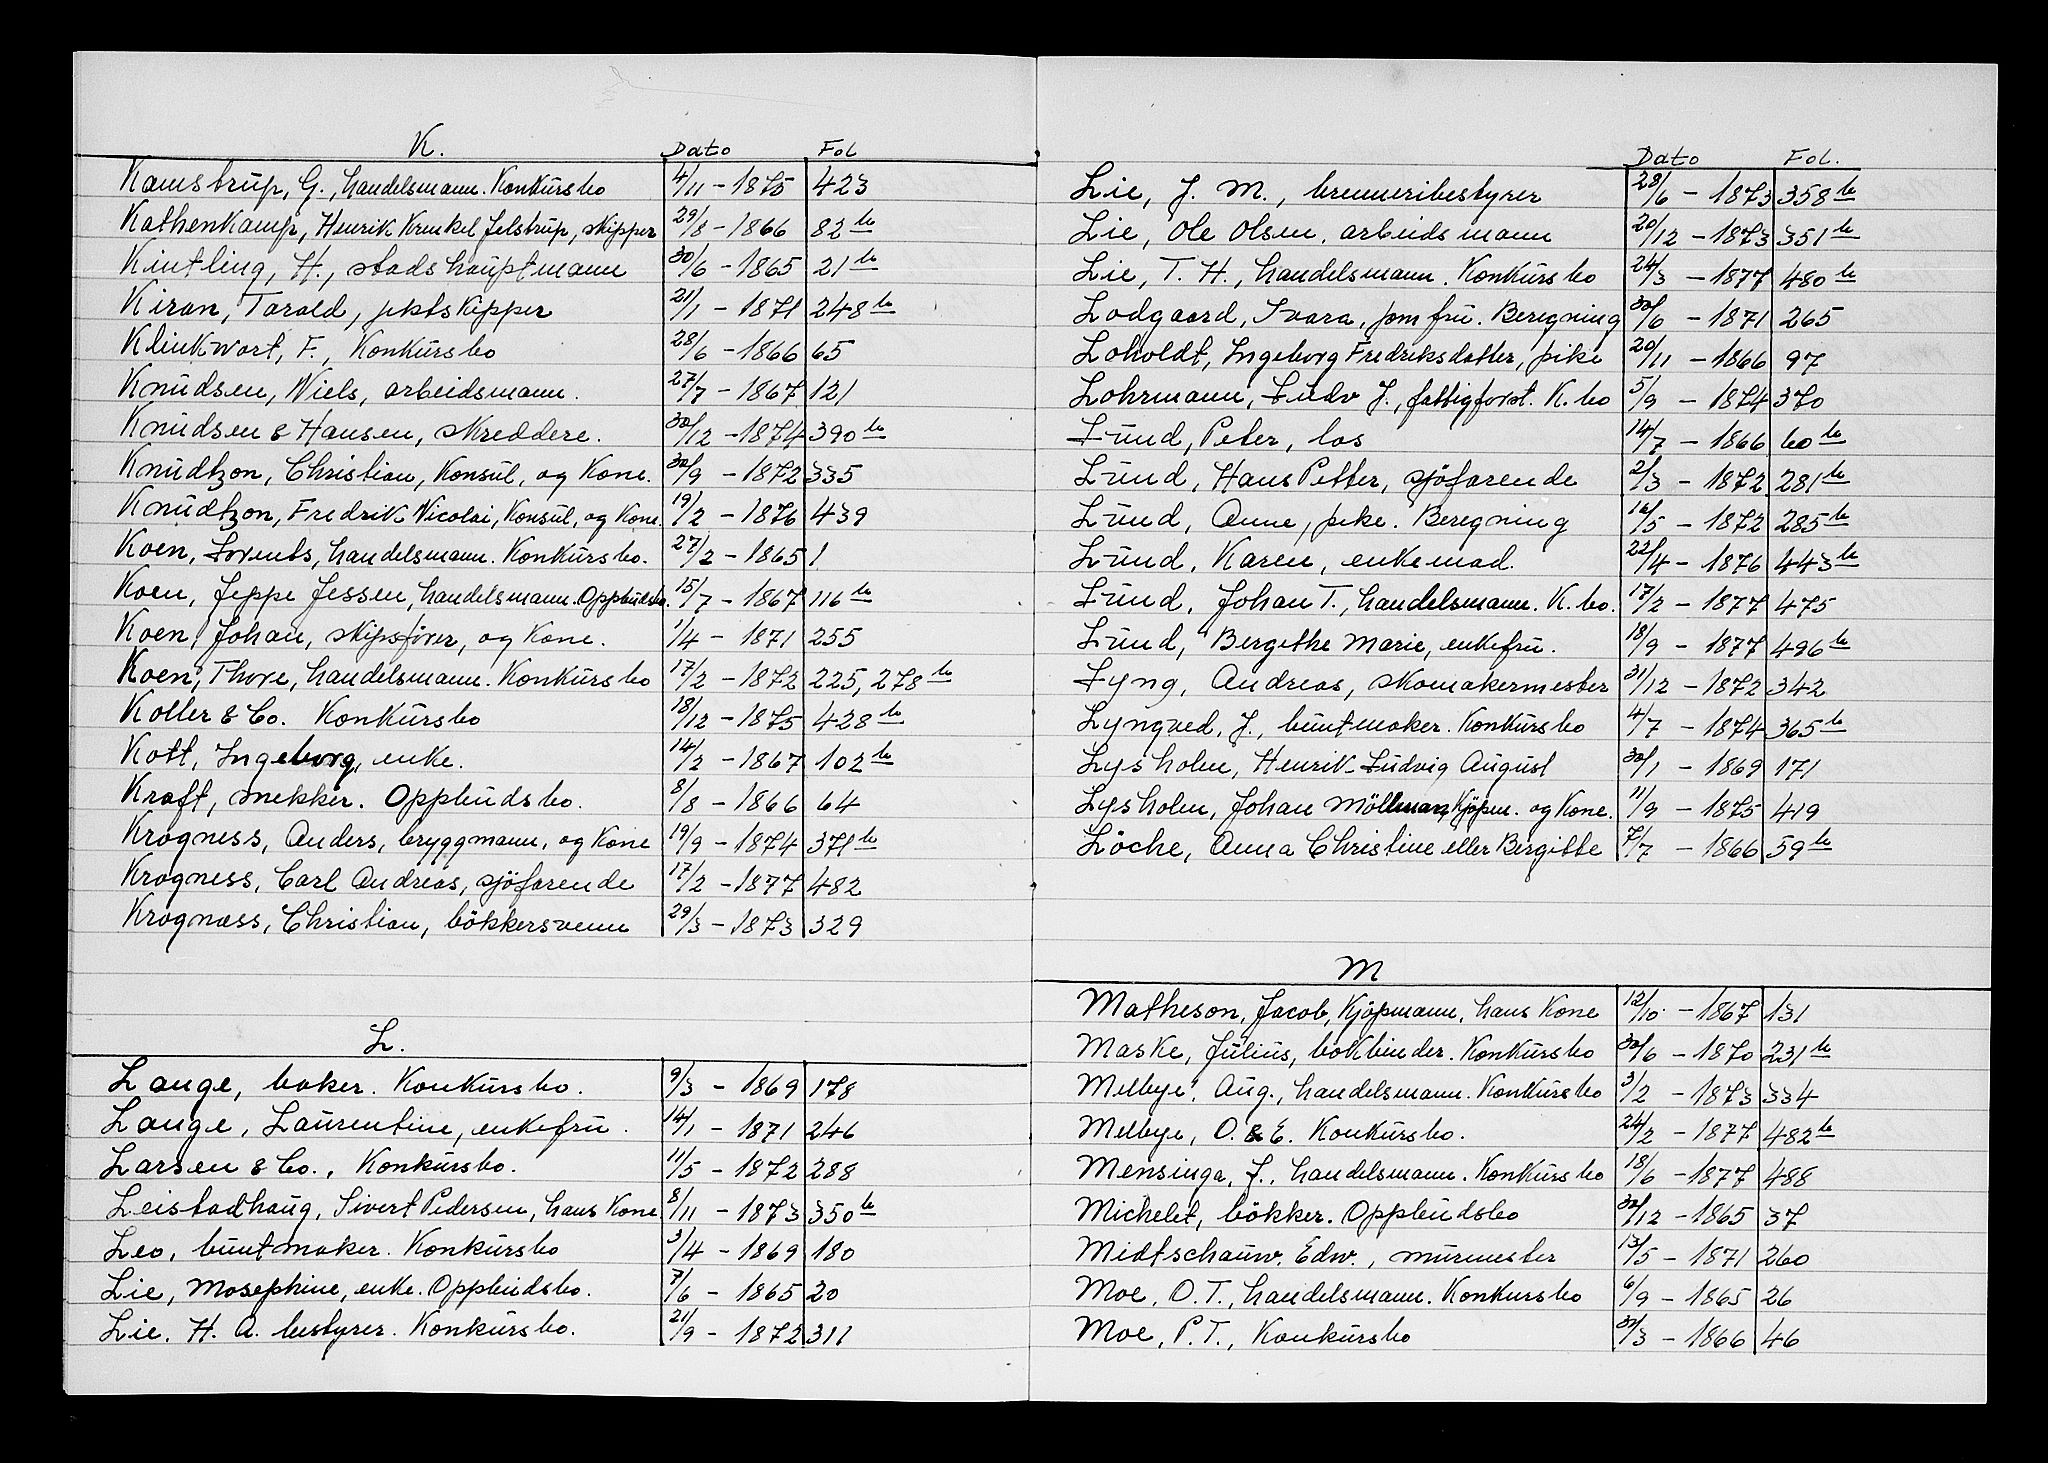 K. Dato Fol
Kamstrup, G., handelsmann. Konkursbo 4/11 - 1875 423
Kathenkamp, Henrik Krenkel Jelstrup, skipper 29/8 - 1866 82 b
Kintling, H., stadshauptmann 30/6 - 1865 21 b
Kiran, Tarald, jektskipper 21/1 - 1871 248 b
Klinkwort, F., Konkursbo 28/6 - 1866 65
Knudsen, Niels, arbeidsmann. 27/7 - 1867 121
Knudsen & Hansen, skreddere. 30/12 - 1874 390 b
Knudtzon, Christian, Konsul, og Kone. 30/9 - 1872 335
Knudtzon, Fredrik Nicolai, Konsul, og Kone. 19/2 - 1876 439
Koen, Lorents, handelsmann. Konkursbo. 27/2 - 1865 1
Koen, Jeppe Jessen, handelsmann. Oppbudsbo. 15/7 - 1867 116 b
Koen, Johan, skipsfører, og Kone. 1/4 - 1871 255
Koen, Thore, handelsmann. Konkursbo 17/2 - 1872 225, 278 b
Koller & Co. Konkursbo 18/12 - 1875 428 b
Kott, Ingeborg, enke. 14/2 - 1867 102 b
Kraft, snekker. Oppbudsbo. 8/8 - 1866 64
Krogness, Anders, bryggmann, og Kone 19/9 - 1874 371 b
Krogness, Carl Andreas, sjöfarende 17/2 - 1877 482
Krognæss, Christian, bökkersvenn 29/3 - 1873 329
L.
Lange, baker. Konkursbo. 9/3 - 1869 178
Lange, Laurentine, enkefru. 14/1 - 1871 246
Larsen & Co., Konkursbo. 11/5 - 1872 288
Leistadhaug, Sivert Pedersen, hans Kone 8/11 - 1873 350 b
Leo, buntmaker. Konkursbo 3/4 - 1869 180
Lie, Mosephine, enke. Oppbudsbo. 7/6 - 1865 20
Lie, H. A. bestyrer. Konkursbo. 21/9 - 1872 311
Dato Fol.
Lie, J. M., brenneribestyrer 28/6 - 1873 358 b
Lie, Ole Olsen, arbeidsmann 20/12 - 1873 351 b
Lie, T. H., handelsmann. Konkursbo 24/3 - 1877 480 b
Lodgaard, Ivara, jomfru. Beregning 30/6 - 1871 265
Loholdt, Ingeborg Fredriksdatter, pike 20/11 - 1866 97
Lohrmann, Ludv J., fattigforst. K. bo 5/9 - 1874 370
Lund, Peter, los 14/7 - 1866 60 b
Lund, Hans Petter, sjöfarende 2/3 - 1872 281 b
Lund, Anne, pike. Beregning 16/5 - 1872 285 b
Lund, Karen, enkemad. 22/4 - 1876 443 b
Lund, Johan T., handelsmann. K. bo. 17/2 - 1877 475
Lund, Bergithe Marie, enkefru. 18/9 - 1877 496 b
Lyng, Andreas, skomakermester 31/12 - 1872 342
Lyngved, J., buntmaker. Konkursbo 4/7 - 1874 365 b
Lysholm, Henrik Ludvig August 30/1 - 1869 171
Lysholm, Johan Möllman, Kjöpm. og Kone. 11/9 - 1875 419
Löche, Anna Christine eller Bergitte 7/7 - 1866 59 b
M
Matheson, Jacob, Kjöpmann, hans Kone 12/10. - 1867 131
Maske, Julius, bokbinder. Konkursbo 30/6 - 1870 231 b
Melbye, Aug., handelsmann. Konkursbo 3/2 - 1873 334
Melbye, O. & E. Konkursbo. 24/2 - 1877 482 b
Mensinga, J., handelsmann. Konkursbo 18/6 - 1877 488
Michelet, bökker. Oppbudsbo 30/12 - 1865 37
Midtschauw. Edw., murmester 13/5 - 1871 260
Moe, O. T., handelsmann. Konkursbo 6/9 - 1865 26
Moe, P. T., Konkursbo 31/3 - 1866 46